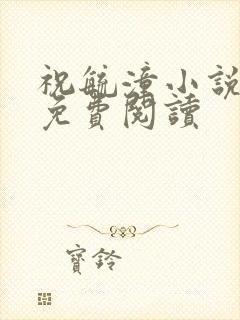 祝毓漳小說
免費閱讀
寶鈴